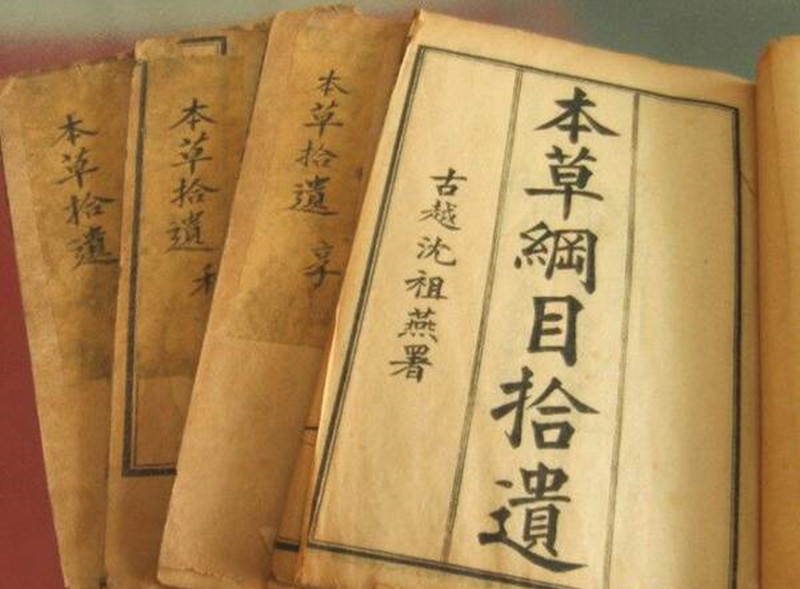 本草綱目拾遺
古越沈祖燕署
本草拾遺 享
本草拾遺
本草拾遺